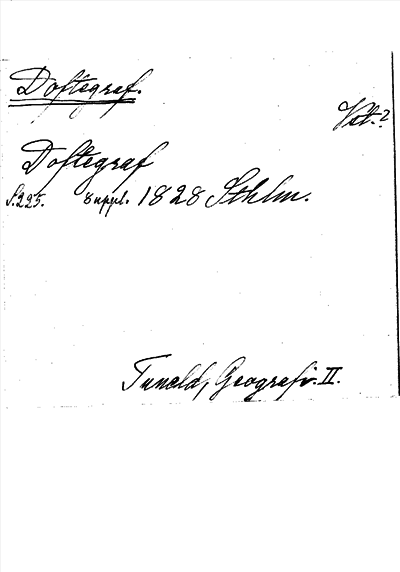 Doftegraf.
Vtl.?
Doftegraf
S. 225. 8 uppl. 1828 Sthlm.
Tuneld, Geografi. II.